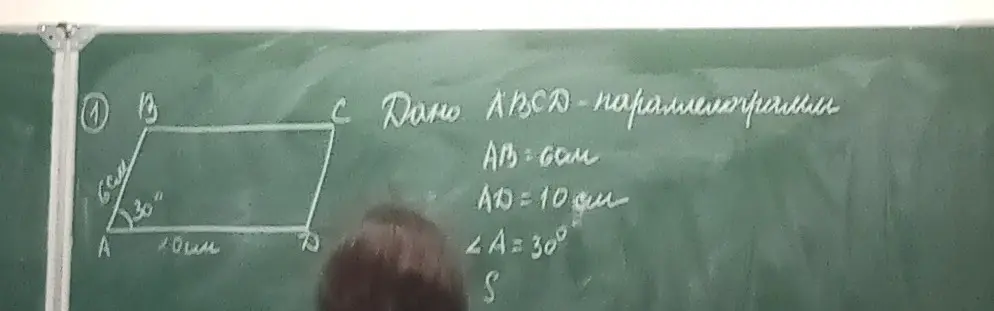 ① B C Дано ABCD - параллелограмм
6см AB = 6см
30° AD = 10 см
A 10см D ∠A = 30°
S